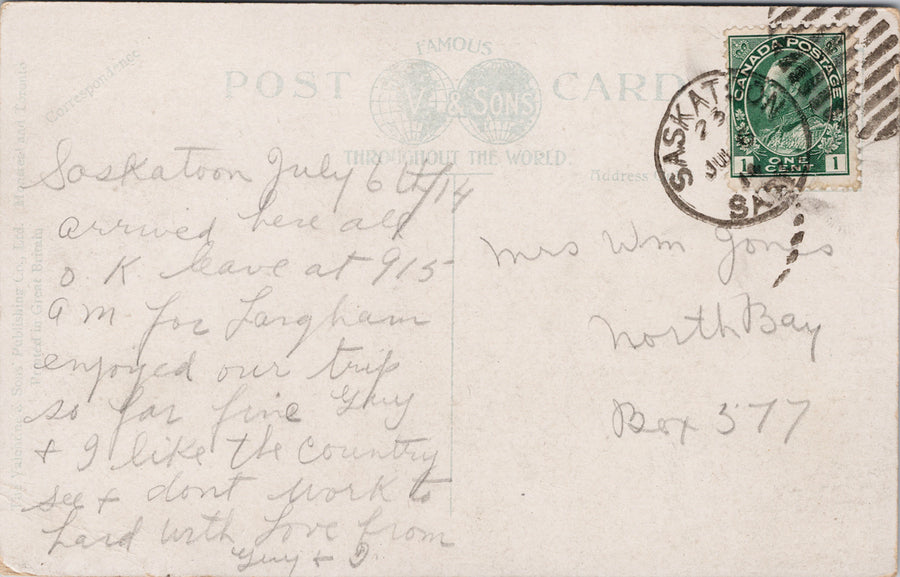 FAMOUS
POST CARD
V. & SONS
THROUGHOUT THE WORLD.
Correspondence
Address
& Sons Publishing Co., Ltd., Montreal and Toronto
Printed in Great Britain
CANADA POSTAGE
1 ONE CENT 1
SASKATOON
23
SASK
Saskatoon July 6th/14
arrived here all
o. K leave at 915
a m for Langham
enjoyed our trip
so far fine Guy
+ I like the country
see + dont work to
hard with Love from
Guy +
Mrs Wm Jones
North Bay
Box 577